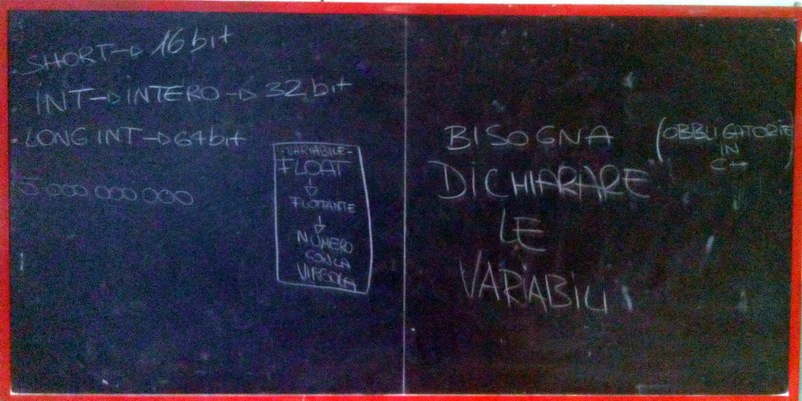 SHORT→16bit
INT→INTERO→32bit
LONG INT→64bit
5.000.000.000
-VARIABILE-
FLOAT
↓
FLOTTANTE
↓
NUMERO
CON LA
VIRGOLA
BISOGNA
DICHIARARE
LE
VARIABILI
(OBBLIGATORIE
IN
C)